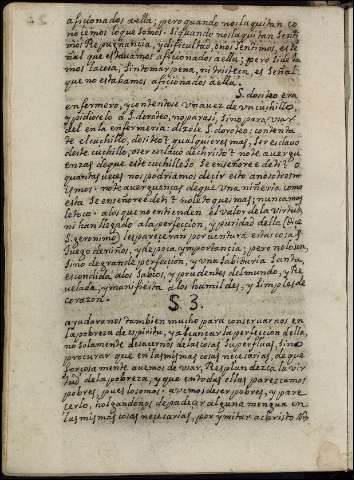 aficionados a ella; pero quando nos la quitan co
nocemos lo que somos. Si quando nos la quitan senti
mos Repugnancia, y dificultad, enos sentimos, es se
ñal que estauamos aficionados a ella; pero si da
mos la cosa, sin tomar pena, ni tristeca, es señal
que no estabamos aficionados a ella.
S. dositeo era
enfermero, y contentose vna uez de vn cuchillo
y pidioselo a S. doroteo, no para si, sino para vsar
del en la enfermeria: dizele S. doroteo: contenta
te el cuchillo, dositeo? qual quieres mas, ser esclauo
deste cuchillo, o ser esclauo de christo? no te auergu
enzas de que este cuchillo se enseñoree de ti? O
quantas veces nos podriamos decir esto a nosotros
mismos. no te auerguenças de que vna niñeria como
esta se enseñoree de ti? no le toques mas; nunca mas
le toco. a los que no entienden el valor de la virtud,
ni han llegado a la perfeccion, y puridad della (dice
S. geronimo) les pareceran por uentura estas cosas
juego de niños, y de poca importancia; pero no lo son,
sino de grande perfeccion, y vna sabiduria santa,
escondida a los sabios, y prudentes del mundo, y Re
uelada, y manifiesta a los humildes, y simples de
corazon.
S 3.
ayudaranos tambien mucho para conseruarnos en
la pobreza de espiritu, y alcançar la perfeccion della,
no solamente desacernos de las cosas superfluas, sino
procurar que en las mismas cosas necesarias, de que
forcosamente auemos de vsar, Resplandezca la vir
tud de la pobreza, y que en todas ellas parezcamos
pobres, pues lo somos. auemos de ser pobres, y pare
cerlo, holgandonos de padecer alguna mengua en
las mismas cosas necesarias, por ymitar a christo